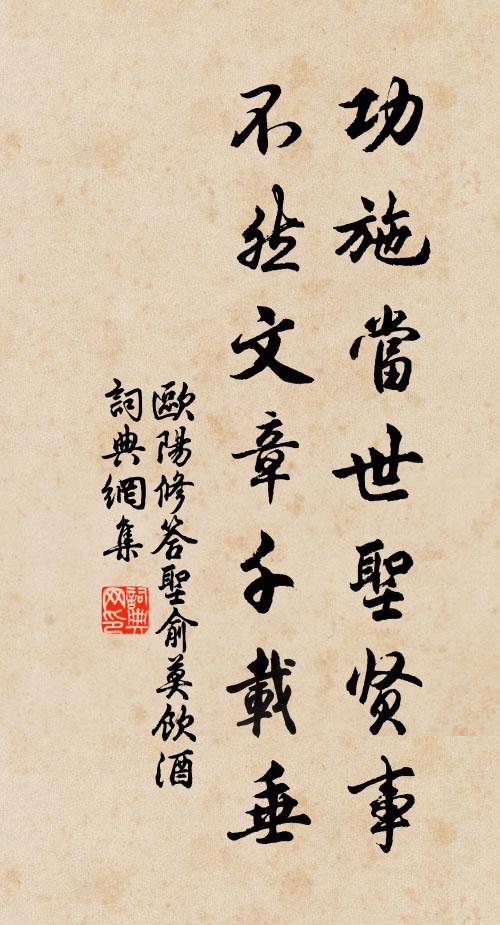 功施當世聖贤事
不然文章千載垂
歐陽修答聖俞莫飲酒
詞典網集
詞典网印